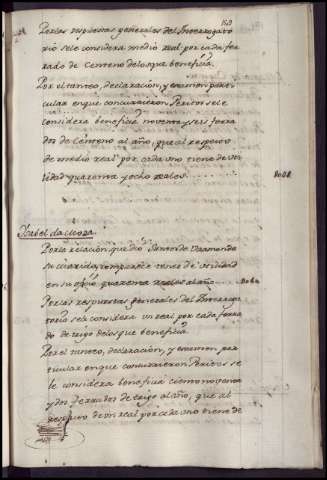 Por las respuestas generales del Interrogato
rio se le considera medio real por cada fer
rado de Centeno de los que beneficia.
Por el tanteo, declarazion, y examen parti
cular en que concurrieron Peritos se le
considera beneficia noventa y seis ferra
dos de Centeno al año, que al respecto
de medio real por cada uno tiene de uti
lidad quarenta y ocho reales
Por la relazion, que dio
su marido, comparece tener de utilidad
en su quarenta reales al año
Por las respuestas generales del Interroga
torio se le considera un real por cada ferra
do de trigo de los que beneficia.
Por el tanteo, declarazion, y examen par
ticular en que concurrieron Peritos se
le considera beneficia ciento noventa
y dos ferrados de trigo al año, que al
respecto de un real por cada uno tiene de